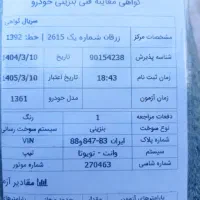 گواهی معاینه فنی بنزینی خودرو
سریال گواهی
مشخصات مرکز زرقان شماره یک 2615 | خط: 1392
شناسه پذیرش 90154238 تاریخ 1404/3/10
زمان ثبت نام 18:43 تاریخ اعتبار 1405/3/10
زمان آزمون مدل خودرو 1361
دفعات مراجعه 1 رنگ
نوع سوخت بنزینی سیستم سوخت رسانی
شماره پلاک ایران 83-847و88 VIN
سیستم وانت - تویوتا تیپ
شماره شاسی 270463 شماره موتور
مقادیر آزم